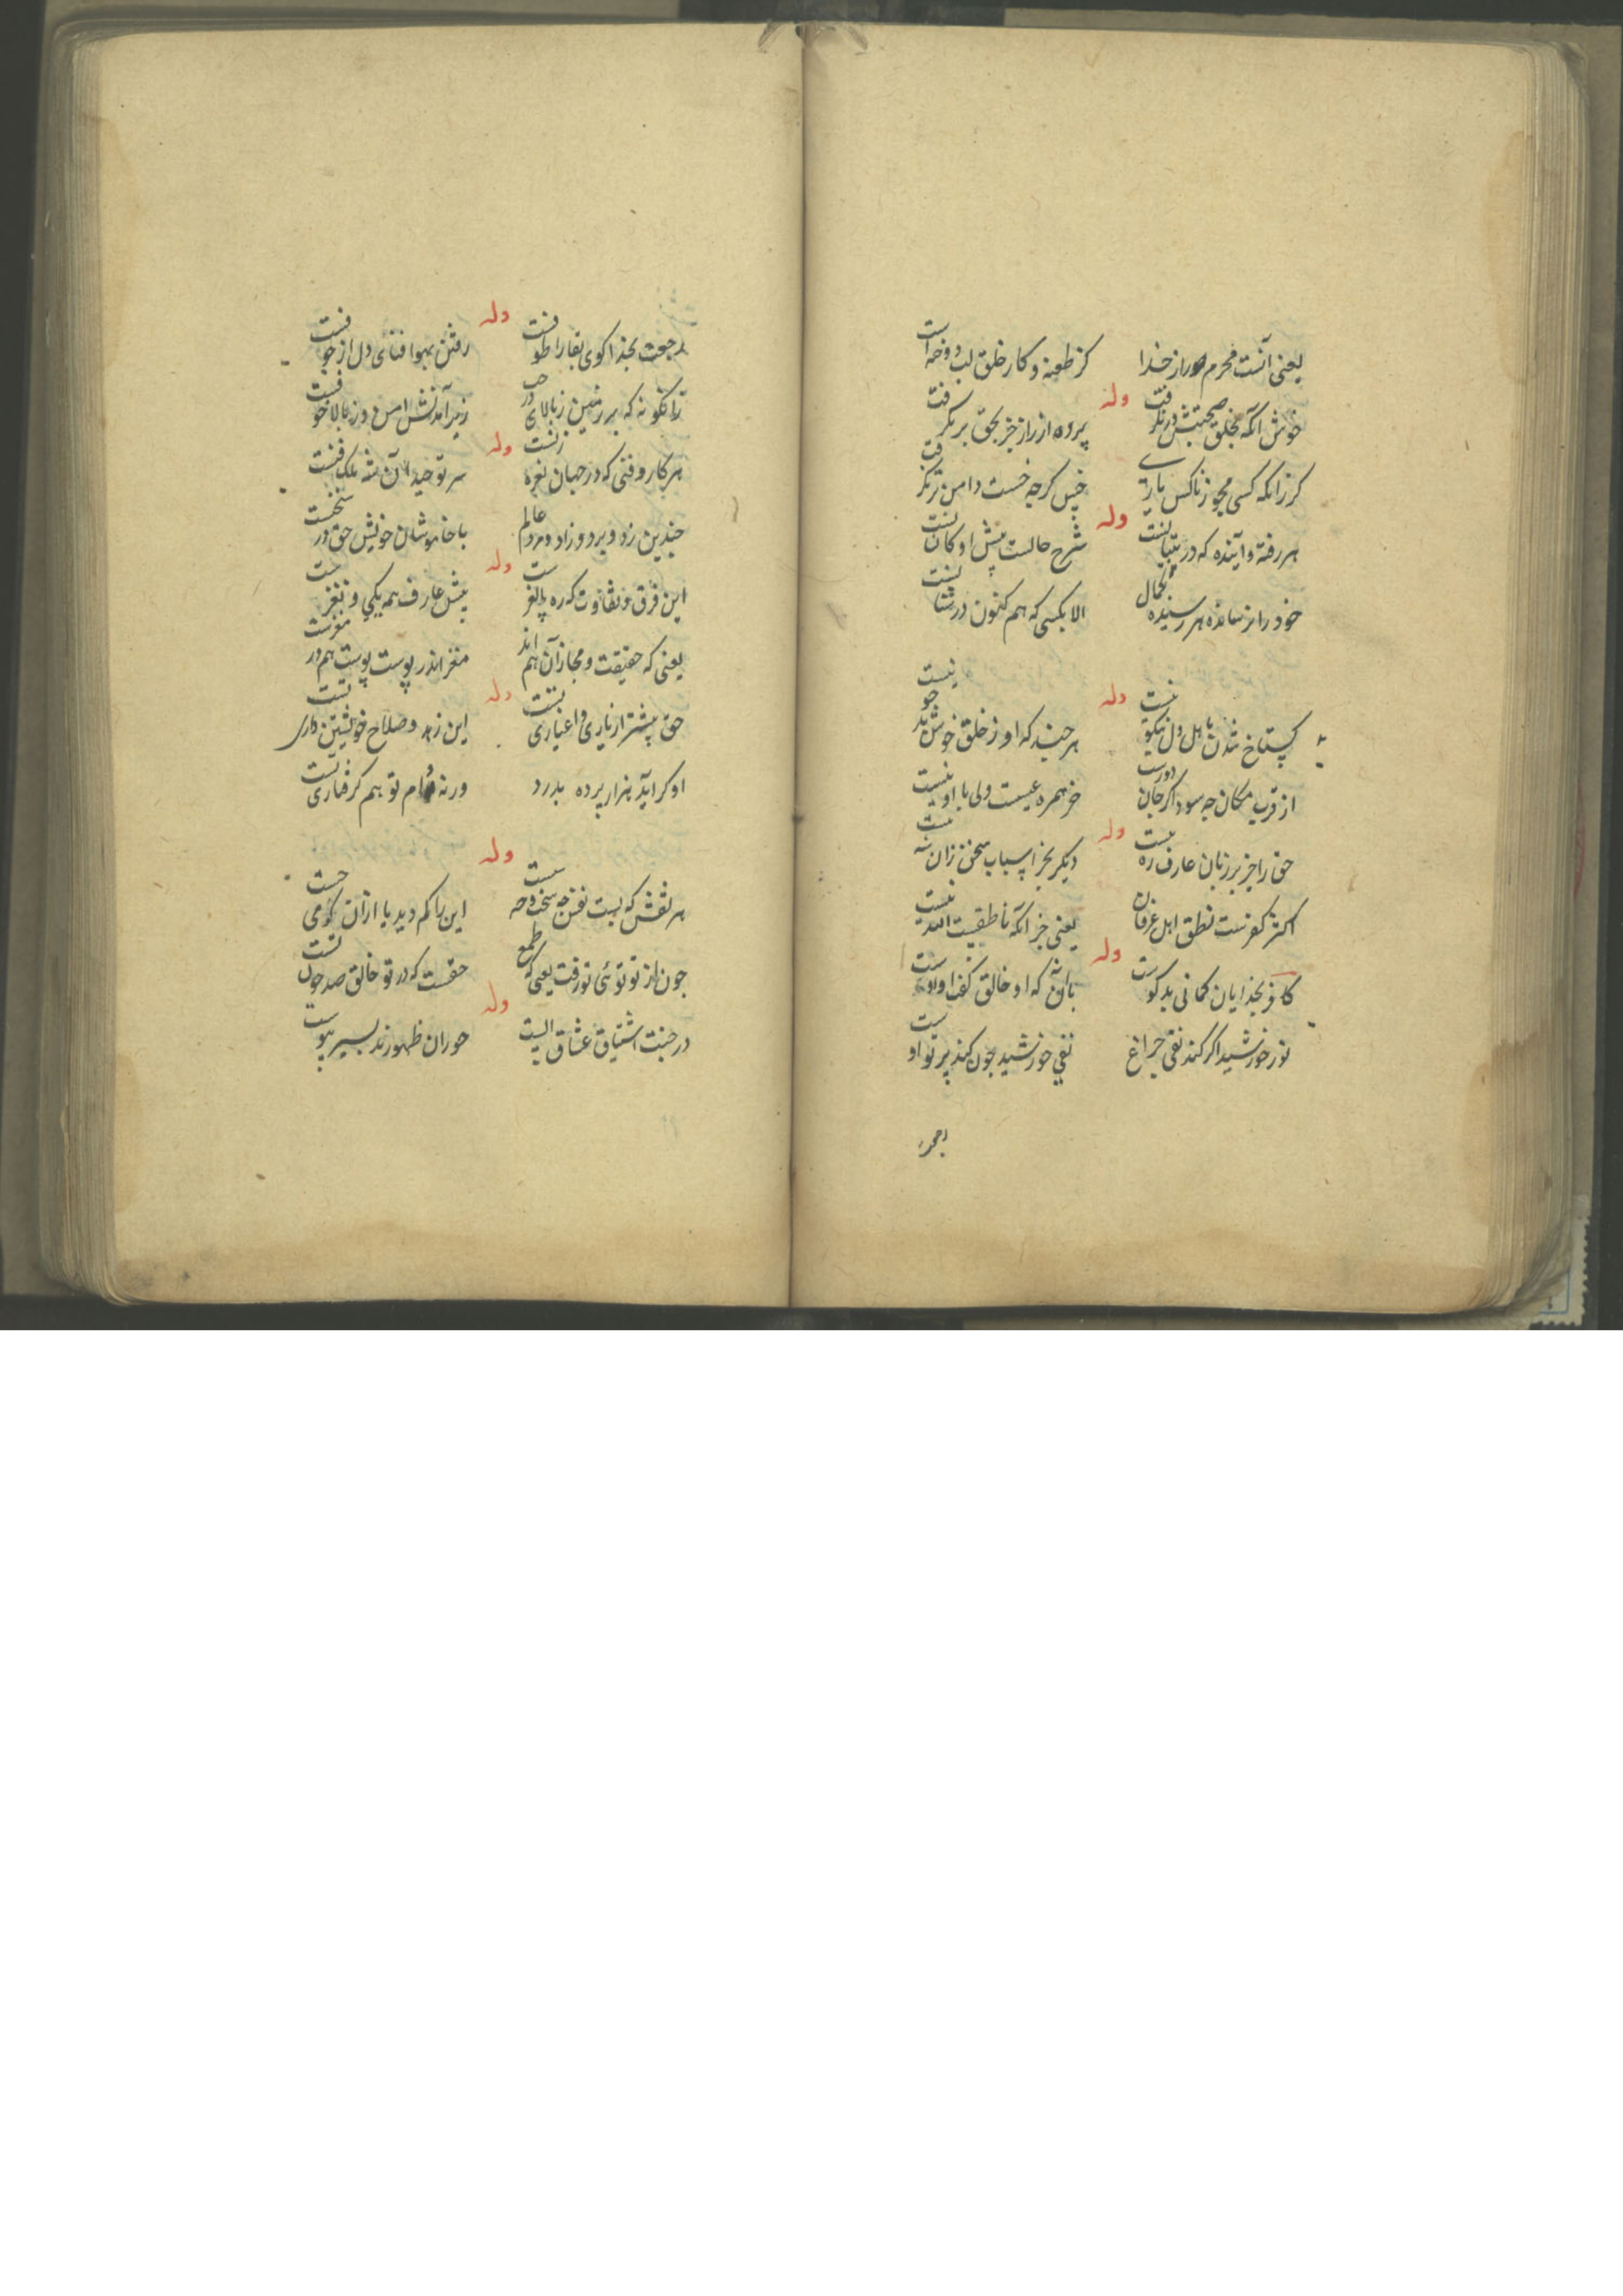 یعنی آنست محرم راز خدا
کز طعنه و کار خلق لب دوخته است
وله
خوش آنکه بخلق صحبتش درنگرفت
پرده از راز جز بحق برنگرفت
کر زانکه کسی مجو ز ناکس یاری
خس کرچه خست دامن تر نگرفت
وله
هر رفته و آینده که در
شرح حالست پیش او کان
خود را نرسانده هر رسیده بکمال
الا بکسی که هم کنون در
وله
کستاخ شدن باهل دل نیکو نیست
هر چند که او ز خلق خوش بدخو نیست
از قرب مکان چه سود اکر جان دورست
خر همره عیسست ولی با او نیست
وله
حق را جز بر زبان عارف ره نیست
دیکر بجز اسباب سخن زان
اکثر کفرست نطق اهل عرفان
یعنی جز آنکه ناطقیست الله نیست
وله
کافر بخدایان کمانی بدکوست
با آنکه او خالق کفر اوست
نور خورشید اکر کند نفی چراغ
نفی خورشید چون کند پرتو اوست
وله
رجعت بخدا کوی بقا را طوفست
رفتن بهوا فنای دل از خوفست
زانکونه که بر زمین ز بالای درخت
زیر آمدنش امن و ز بالا خوفست
وله
هر کار و فنی که در جهان نغزفنست
سر توحید آن شه ملک فنست
چندین زد و برد و زاد و مرد عالم
با خاموشان خویش حق در سخنست
وله
این فرق و تفاوت که ره
پیش عارف همه یکی و نغزست
یعنی که حقیقت و مجاز آن هم اند
مغز اندر پوست پوست هم در مغزست
وله
حق پیشتر از یاری و اغیاری تست
این زهد و صلاح خویشتن داری تست
او کر آید هزار پرده بدرد
ورنه دام تو هم کرفتاری تست
وله
هر نقش که بست نفس چه سخت و چه سست
این را کم دید یا از آن کرمی جست
چون از تو توئی تو رفت یعنی که طمع
حقست که در تو خالق صد چون تست
وله
در جنت اشتیاق عشاق الست
حوران ظهورند بسیر پیوست